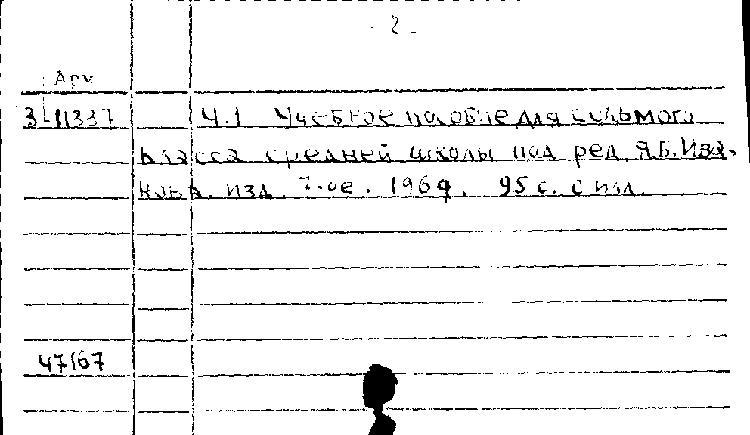 - 2 -
Арх
З-11337 Ч.1 Учебное пособие для седьмого
класса средней школы под ред. Я.Б. Ива-
нова. изд. 7-ое. 1964. 95 с. с ил.
47167